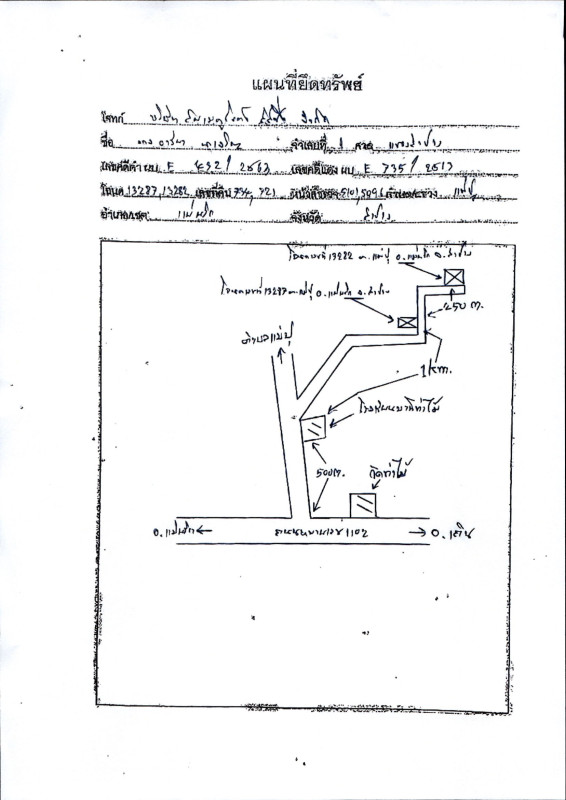 แผนที่ยึดทรัพย์
โจทก์ บริษัท จำกัด
ชื่อ นาง ลำดับที่ 1
เลขคดีดำ ผบ. E 432/2563 เลขคดีแดง ผบ. E 735/2513
โฉนด 13287, 13282 เลขที่ดิน 734, 721 หน้าสำรวจ 5101, 509 แม่ปุ
อำนาจ/เขต แม่พริก จังหวัด ลำปาง
โฉนดเลขที่ 13282 ต.แม่ปุ อ.แม่พริก จ.ลำปาง
โฉนดเลขที่ 13287 ต.แม่ปุ อ.แม่พริก จ.ลำปาง
250 m.
ตำบลแม่ปุ
1 km.
โรงเรียนบ้านท่าไม้
500 m.
วัดท่าไม้
อ.แม่พริก
ถนนหมายเลข 1102
อ.เถิน